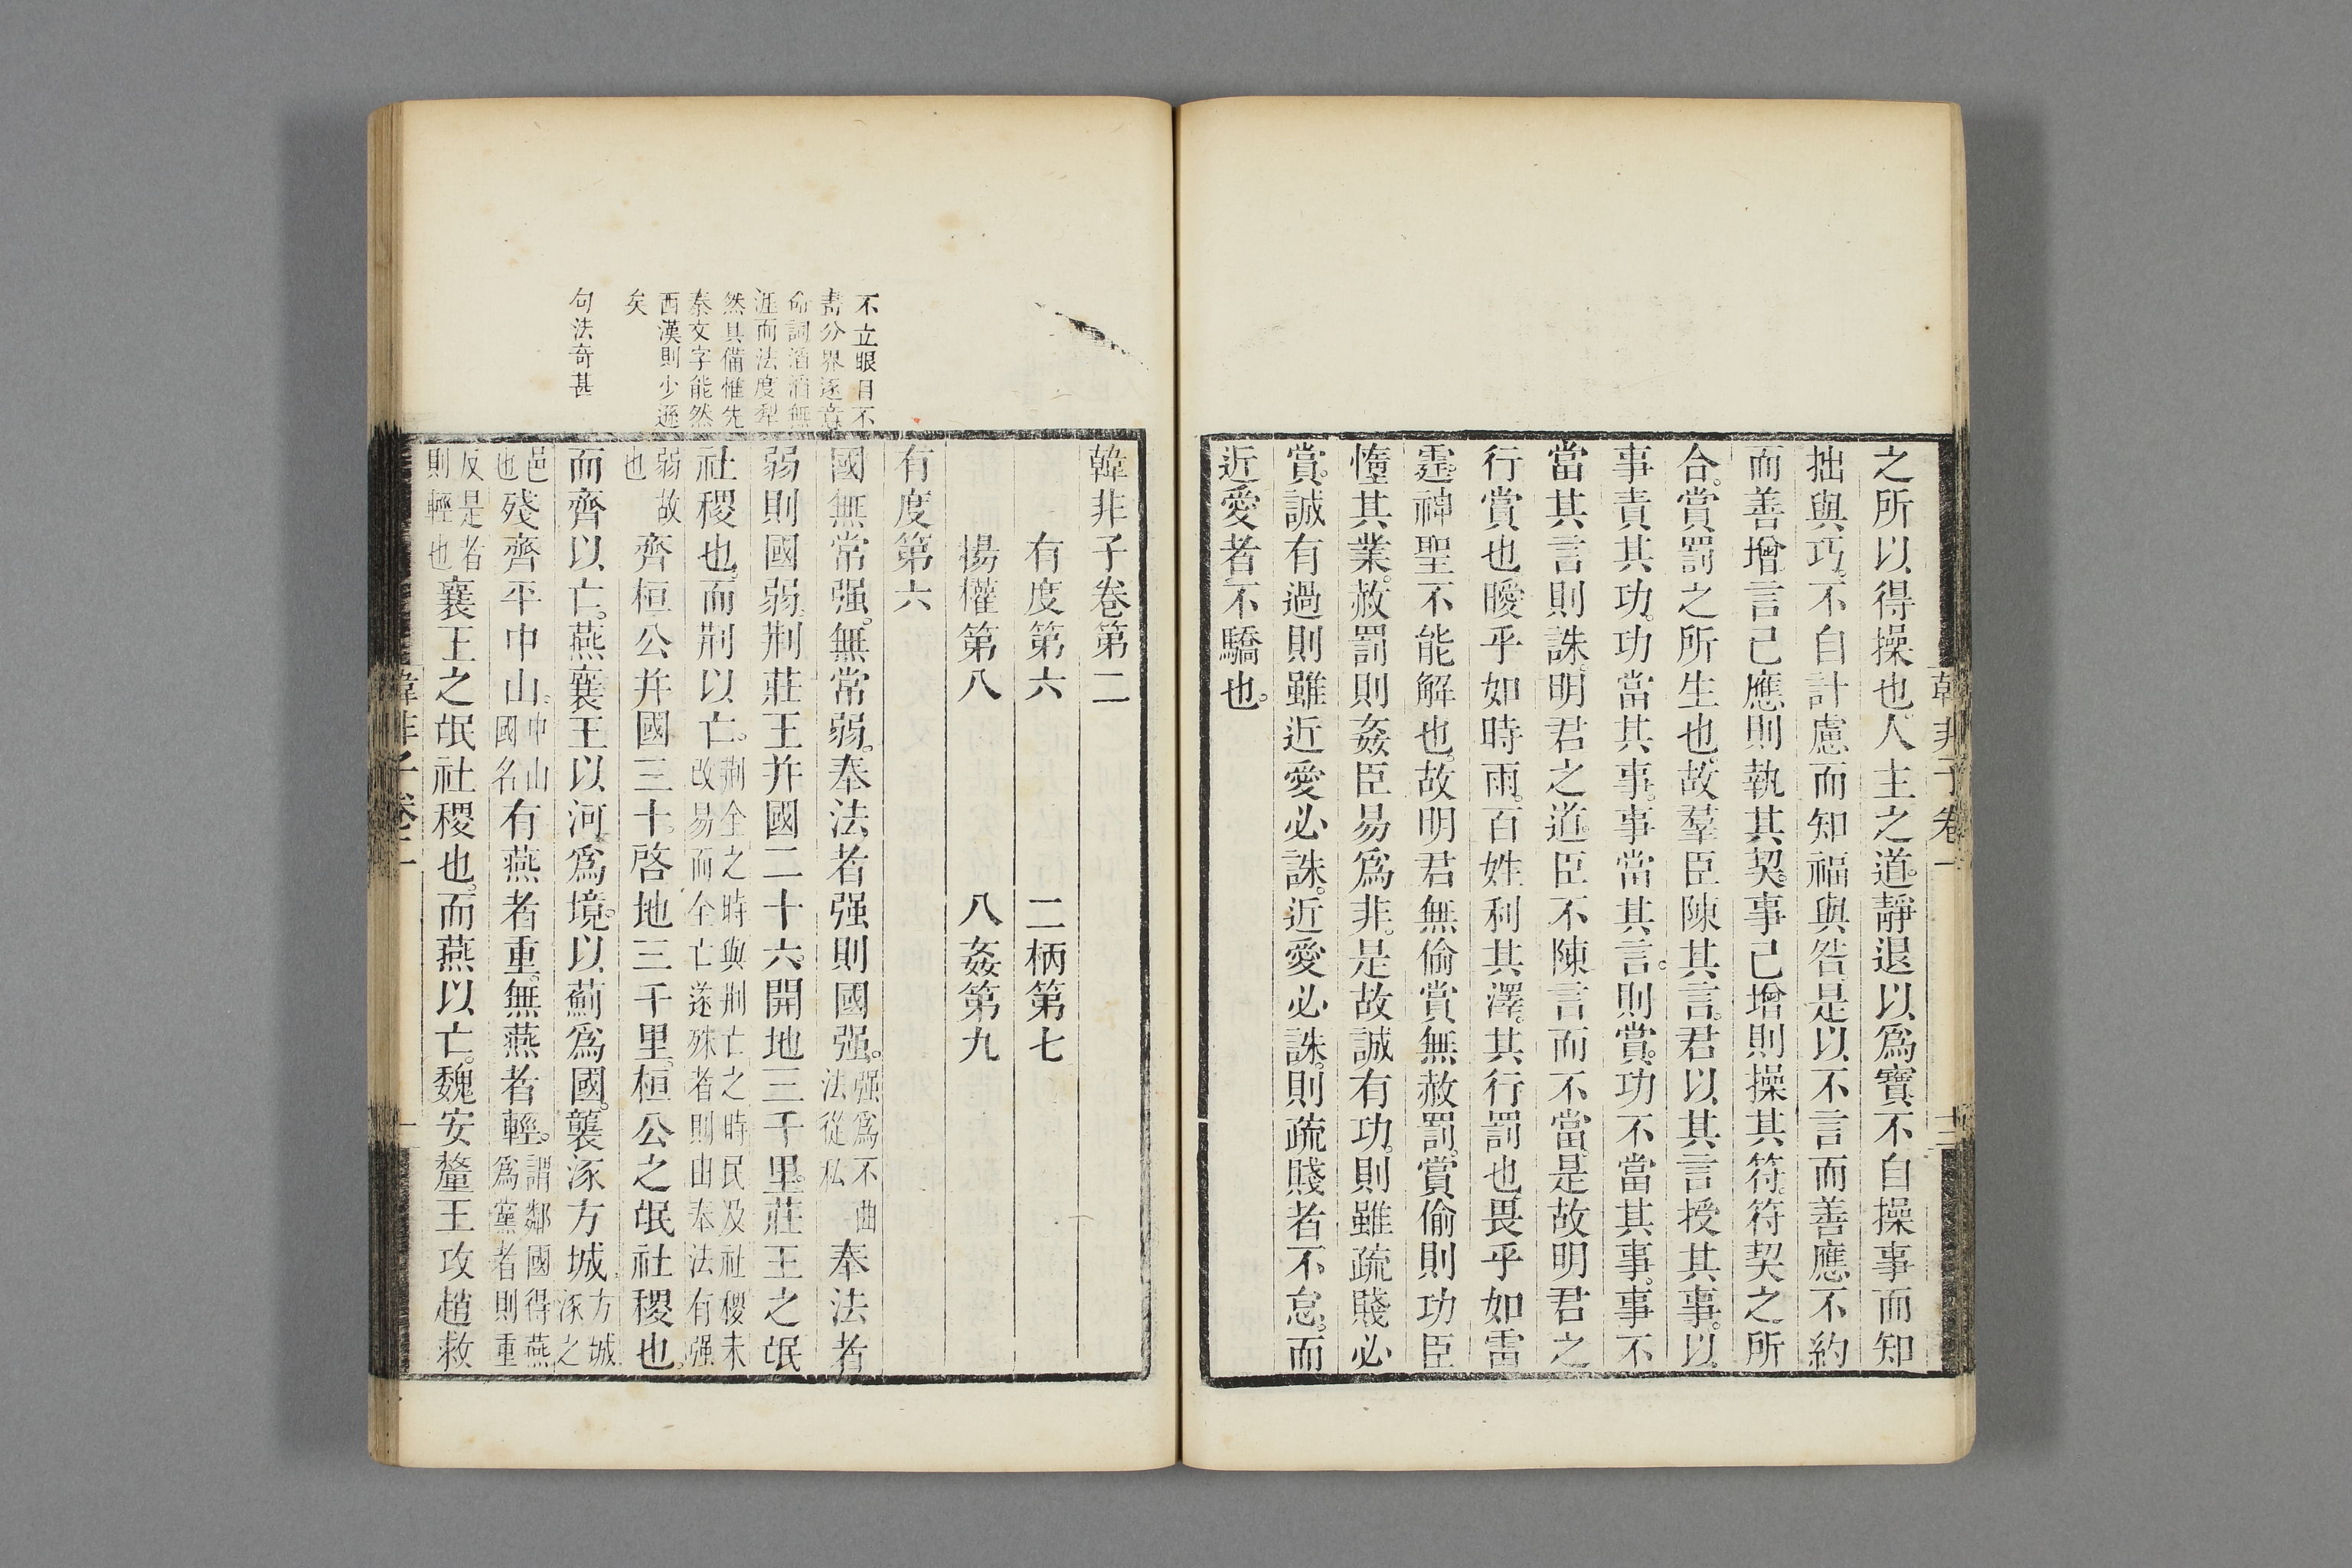 之所以得操也人主之道。靜退以爲寶不自操事而知
拙與巧。不自計慮而知福與咎是以不言而善應不約
而善增言己應則執其契。事己增則操其符。符契之所
合。賞罰之所生也。故羣臣陳其言。君以其言授其事。以
事責其功。功當其事。事當其言。則賞。功不當其事。事不
當其言則誅。明君之道。臣不陳言而不當。是故明君之
行賞也曖乎如時雨。百姓利其澤。其行罰也畏乎如雷
霆。神聖不能解也。故明君無偷賞無赦罰。賞偷則功臣
惰其業。赦罰則姦臣易爲非。是故誠有功。則雖疏賤必
賞。誠有過則雖近愛必誅。近愛必誅。則疏賤者不怠。而
近愛者不驕也。
韓非子卷一
韓非子卷第二
有度第六 二柄第七
揚權第八 八姦第九
有度第六
國無常强。無常弱。奉法者强則國强。强爲不曲法從私奉法者
弱則國弱。荆莊王并國二十六。開地三千里。莊王之氓
社稷也。而荆以亡。荆全之時與荆亡之時民及社稷未改易而全亡遂殊者則由奉法有强
弱故也齊桓公并國三十。啓地三千里。桓公之氓社稷也。
而齊以亡。燕襄王以河爲境。以薊爲國。襲涿方城方城涿之
邑也殘齊平中山。中山國名有燕者重。無燕者輕。謂鄰國得燕爲黨者則重
反是者則輕也襄王之氓社稷也。而燕以亡。魏安釐王攻趙救
不立眼目不
畵分界逐意
命詞滔滔無
涯而法度犁
然具備惟先
秦文字能然
西漢則少遜
矣
句法奇甚
韓非子卷二